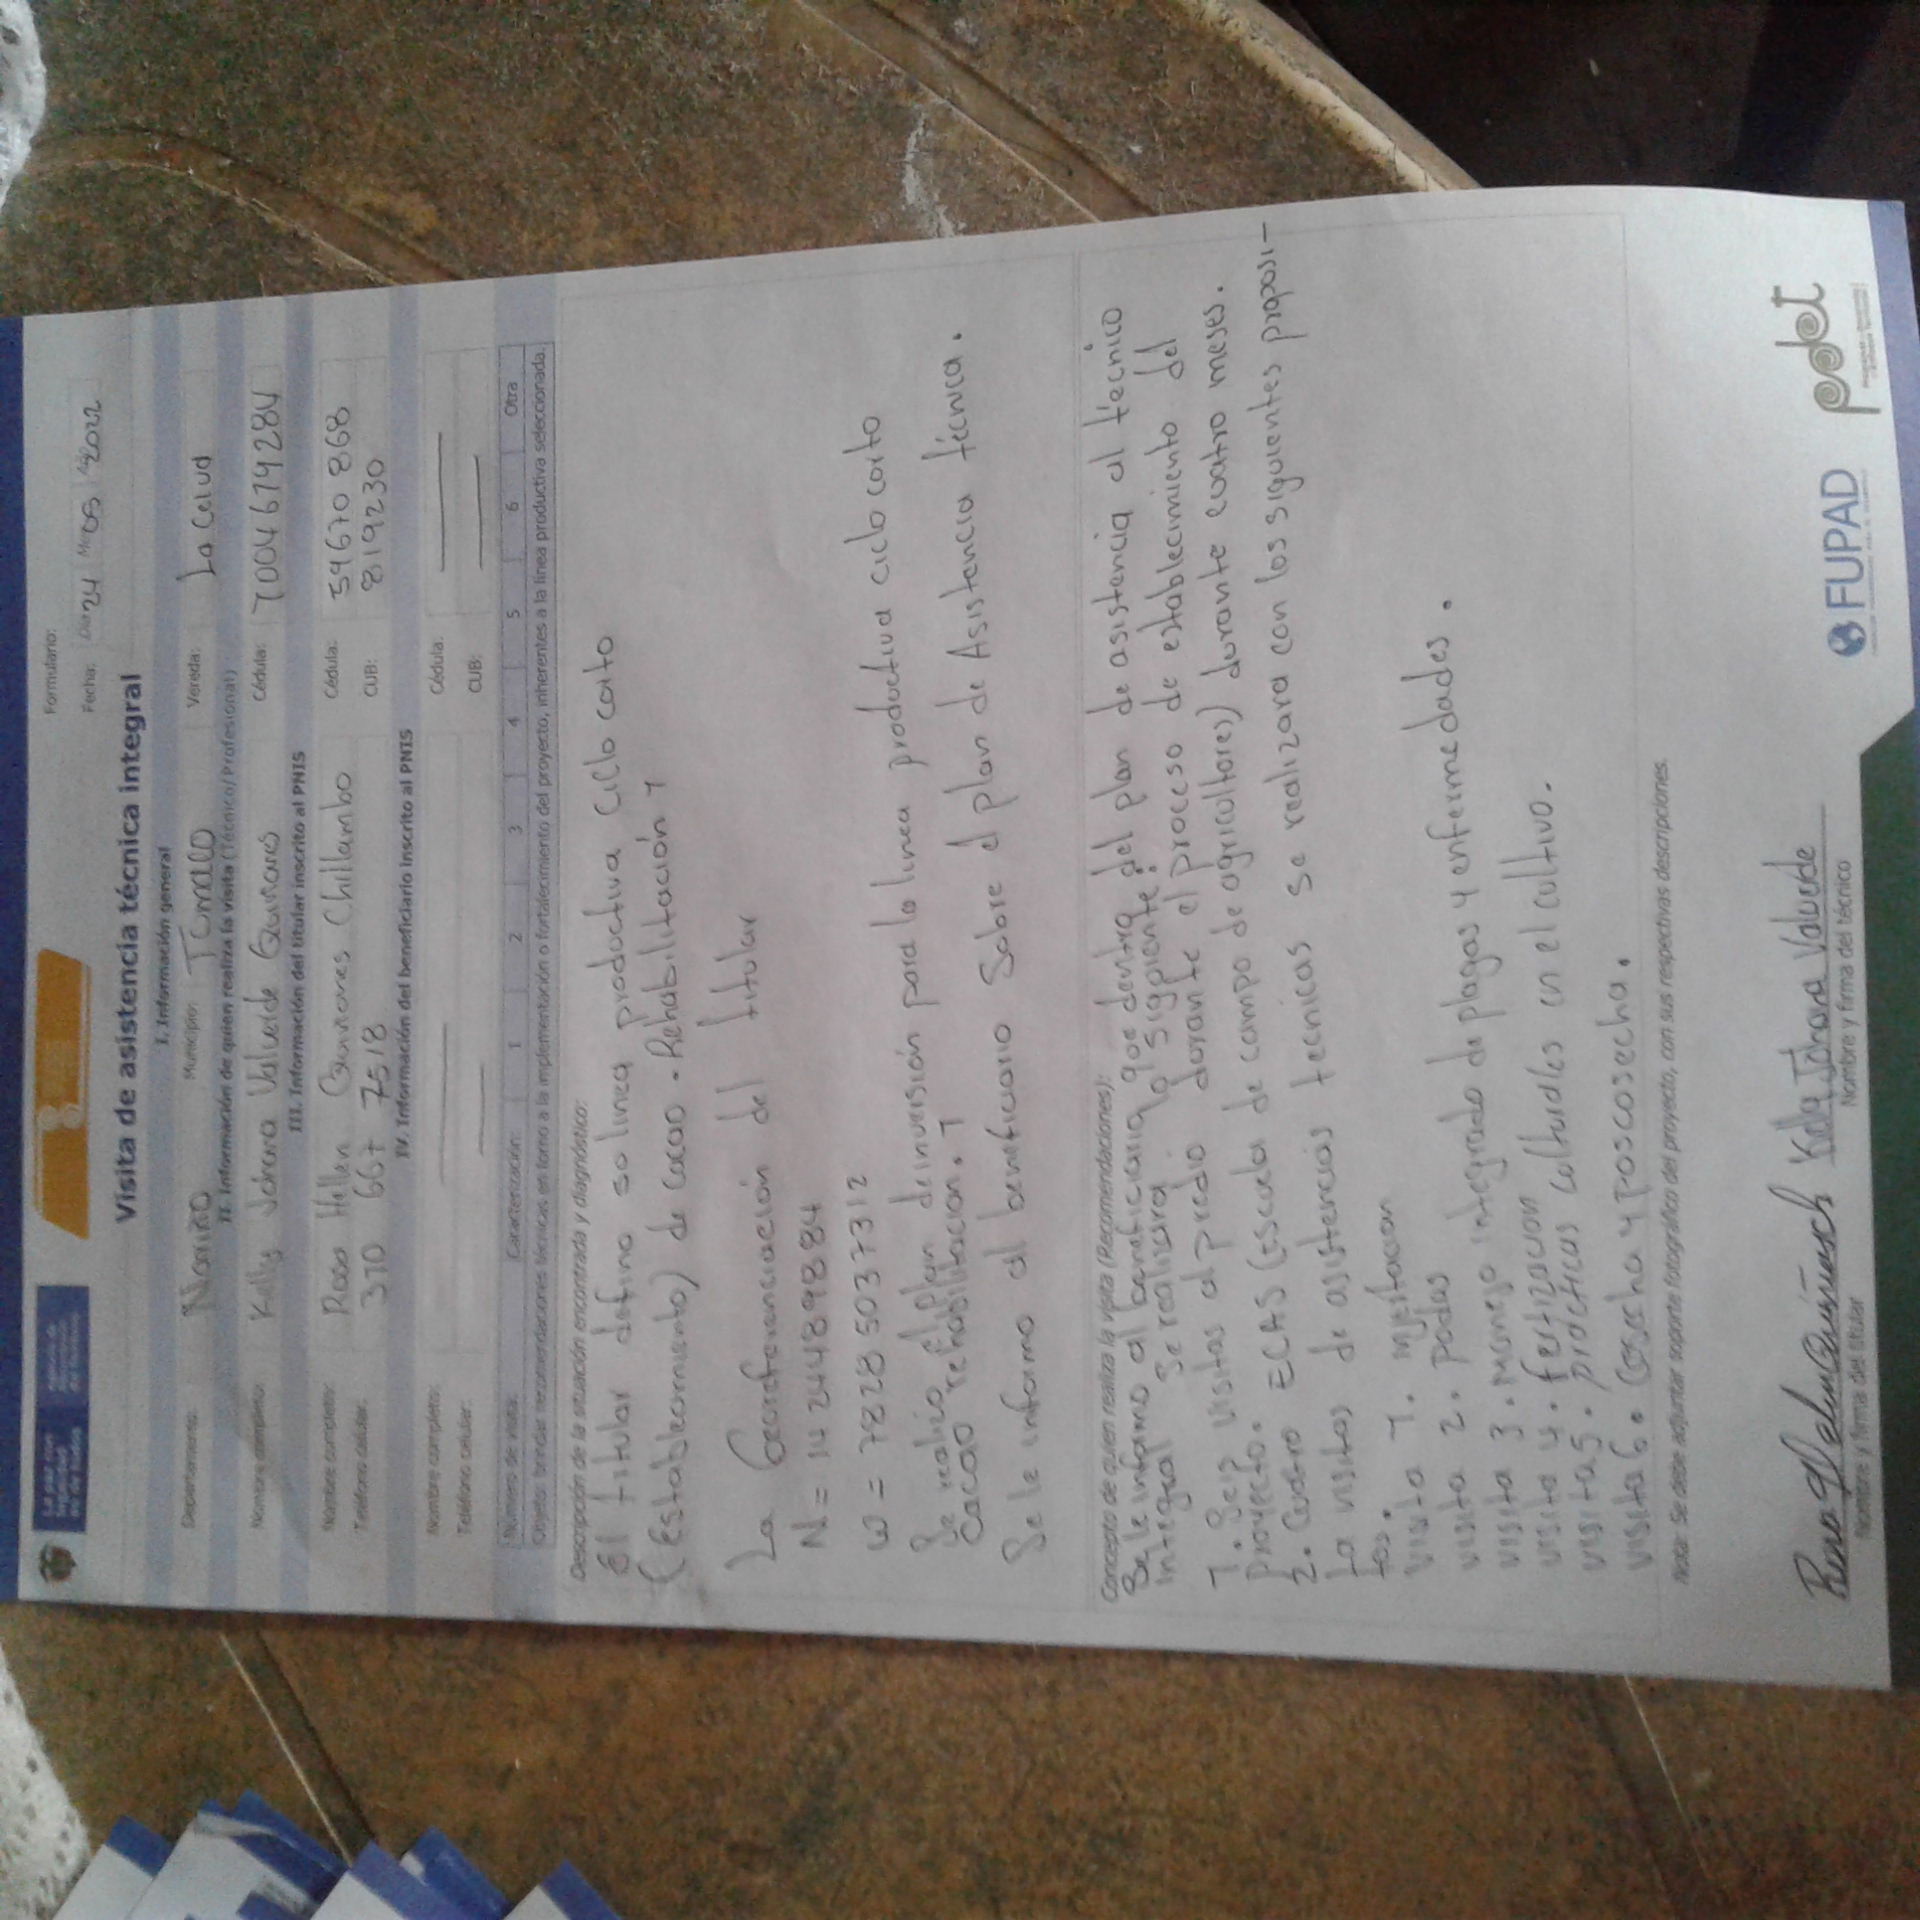 Formulario:
Fecha: Dia 24 Mes 05 Año 2022
Visita de asistencia técnica integral
I. Información general
Departamento: Nariño Municipio: Tumaco Vereda: La Celud
II. Información de quien realiza la visita (Técnico/Profesional)
Nombre completo: Kelly Johana Valverde Quiñones Cédula: 1004619284
III. Información del titular inscrito al PNIS
Nombre completo: Rosa Hellen Quiñones Chillambo Cédula: 59670868
Teléfono celular: 310 667 7518 CUB: 819230
IV. Información del beneficiario inscrito al PNIS
Nombre completo: Cédula:
Teléfono celular: CUB:
Número de visita: Caracterización: 1 2 3 4 5 6 Otra
Objeto: brindar recomendaciones técnicas en torno a la implementación o fortalecimiento del proyecto, inherentes a la línea productiva seleccionada.
Descripción de la situación encontrada y diagnóstico:
El titular defino so linea productiva Ciclo corto
(Establecomiento) de cacao . Rehabilitación 1
La Georeferenciación del titular
N = 14 24489884
W = 7828 5037312
Se realizo el plan de inversión para la linea productiva ciclo corto
Cacao rehabilitacion. 1
Se le informo al beneficiario Sobre el plan de Asistencia técnica.
Concepto de quien realiza la visita (Recomendaciones):
Se le informo al beneficiario que dentro del plan de asistencia al técnico
integral se realizara lo siguiente:
1. Seis visitas al predio durante el proceso de establecimiento del
proyecto.
2. Cuatro ECAS (Escuela de campo de agricultores) durante cuatro meses.
La visitas de asistencias tecnicas se realizara con los siguientes proposi-
tos.
Visita 1.
visita 2. podas
visita 3. manejo integrado de plagas y enfermedades.
visita 4. fertizacion
visita 5. prácticas culturales en el cultivo.
visita 6. Cosecha y poscosecha.
Nota: Se debe adjuntar soporte fotográfico del proyecto, con sus respectivas descripciones.
Kelly Johana Valverde
Nombre y firma del titular Nombre y firma del técnico
FUPAD pdet